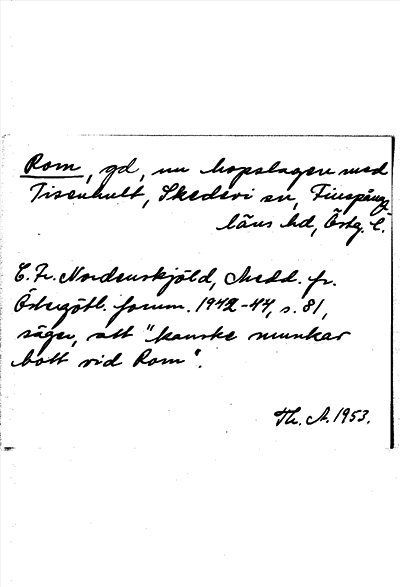 Rom, gd, nu hopslagen med
Tisenhult, Skedevi sn, Finspång
läns hd, Östg. l.
C. Fr. Nordenskjöld, Medd. fr.
Östergötl. fornm. 1942-44, s. 81,
säger, att "kanske munkar
bott vid Rom".
Th. A. 1953.